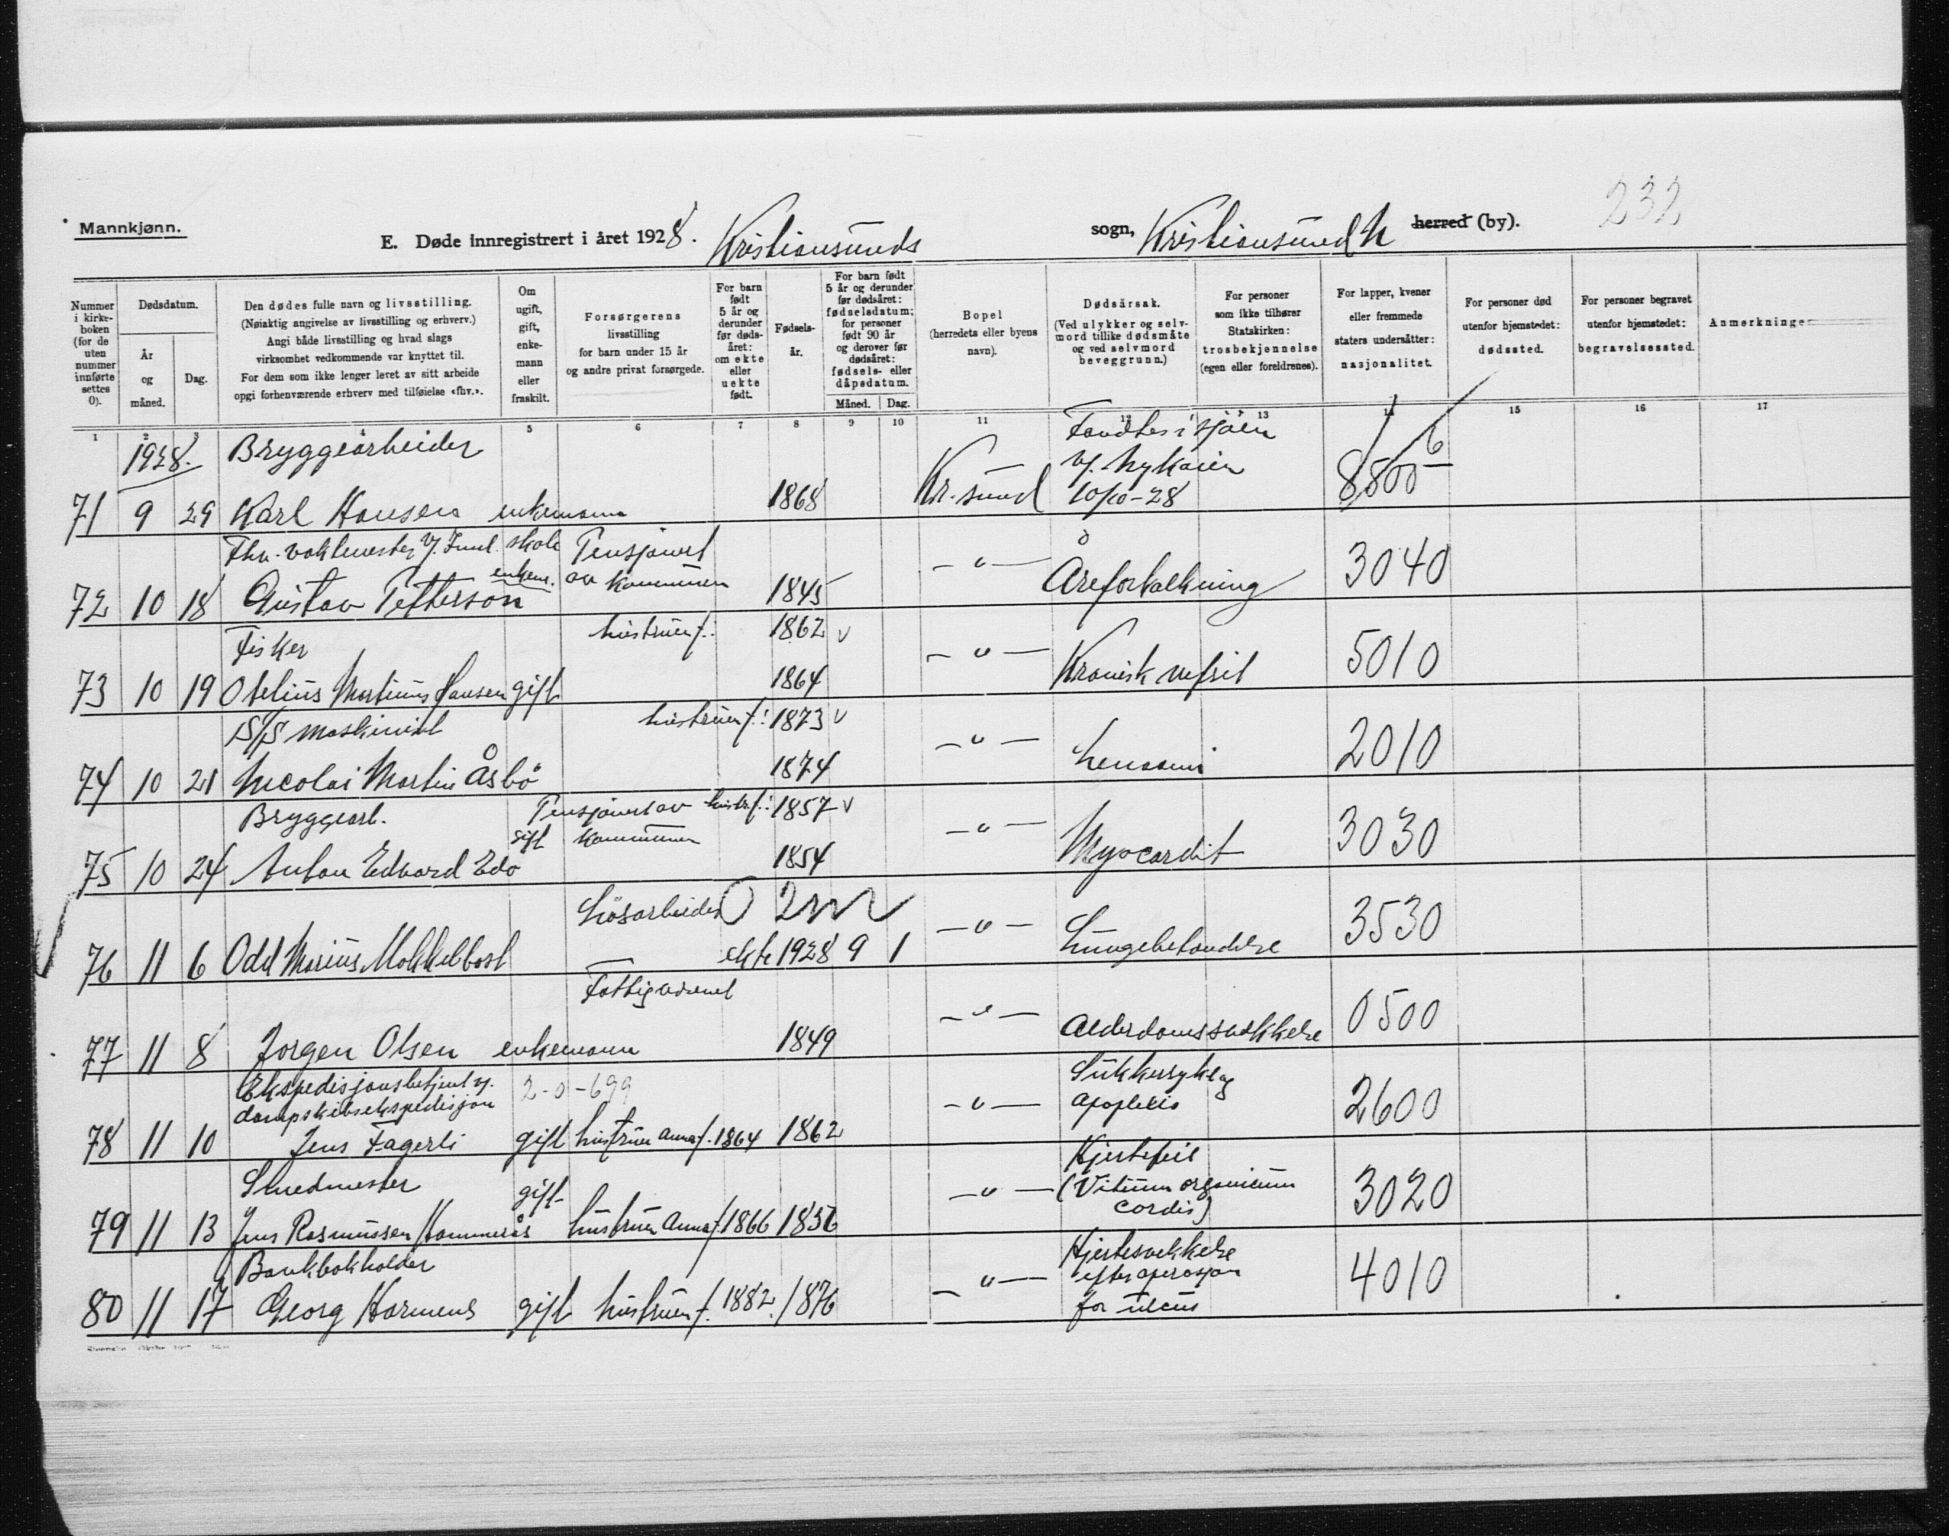 232
Mannkjønn.
E. Døde innregistrert i året 1928. Kristiansunds sogn, Kristiansund N herred (by).
Nummer i kirkeboken (for de uten nummer innførte settes 0).
Dødsdatum.
År og måned.
Dag.
Den dødes fulle navn og livsstilling.
(Nøiaktig angivelse av livsstilling og erhverv.)
Angi både livsstilling og hvad slags
virksomhet vedkommende var knyttet til.
For dem som ikke lenger levet av sitt arbeide
opgi forhenværende erhverv med tilføielse «fhv.».
Om ugift, gift, enkemann eller fraskilt.
Forsørgerens livsstilling
for barn under 15 år
og andre privat forsørgede.
For barn født 5 år og derunder før dødsåret: om ekte eller uekte født.
Fødselsår.
For barn født 5 år og derunder før dødsåret: fødselsdatum; for personer født 90 år og derover før dødsåret: fødsels- eller dåpsdatum.
Måned. Dag.
Bopel
(herredets eller byens navn).
Dødsårsak.
(Ved ulykker og selvmord tillike dødsmåte og ved selvmord beveggrunn.)
For personer som ikke tilhører Statskirken: trosbekjennelse (egen eller foreldrenes).
For lapper, kvener eller fremmede staters undersåtter: nasjonalitet.
For personer død utenfor hjemstedet: dødssted.
For personer begravet utenfor hjemstedet: begravelsessted.
Anmerkninger
1 2 3 4 5 6 7 8 9 10 11 12 13 14 15 16 17
1928. Bryggearbeider Fandtes i sjøen
v/. Nykaien
71 9 29 Karl Hansen enkemann 1868 Kr.sund 10/10-28 8800 6
Fhv. vaktmester v/. skole Pensjonert
enkem. av kommunen
72 10 18 Gustav Petterson 1845 -"- Åreforkalkning 3040
Fisker hustruen f.: 1862 v
73 10 19 Otelius Martinus Hansen gift 1864 -"- Kronisk nefrit 5010
D/S maskinist hustruen f.: 1873 v
74 10 21 Nicolai Martin Åsbö 1874 -"- 2010
Bryggearb. Pensjonert av hustr. f.: 1857 v
gift kommunen
75 10 24 Anton Edvard Edö 1854 -"- Myocardit 3030
Løsarbeider 2 m
76 11 6 Odd Marius Mokkelbost ekte 1928 9 1 -"- Lungebetendelse 3530
Fattigvesenet
77 11 8 Jørgen Olsen enkemann 1849 -"- Alderdomssvekkelse 0500
Ekspedisjonsbetjent v. 2-0-699 Sukkersyke og
dampskibsekspedisjon apoplexi
78 11 10 Jens Fagerli gift hustruen Anna f. 1864 1862 -"- 2600
Smedmester Hjertefeil
gift (Vitium organicum
cordis)
79 11 13 Jens Rasmussen Hammerås hustruen Anna f. 1866 1856 -"- 3020
Bankbokholder Hjertesvekkelse
efter operasjon
80 11 17 Georg Harmens gift hustruen f. 1882. 1876 -"- for ulcus 4010